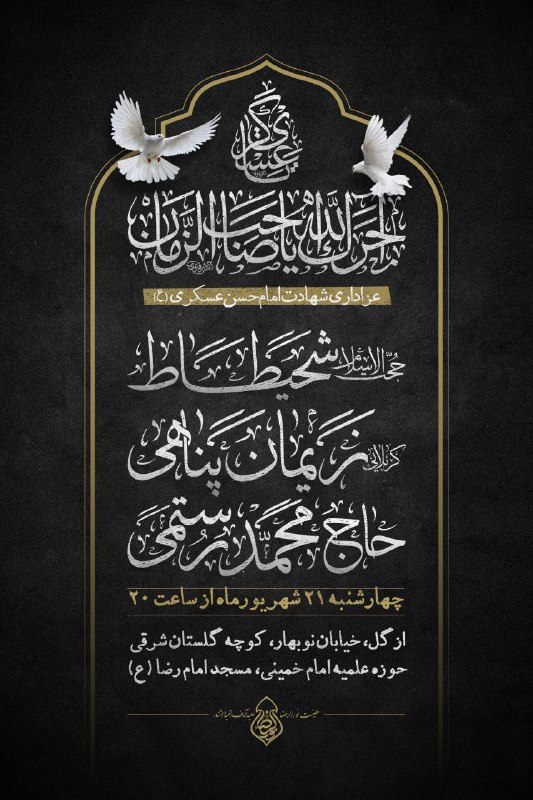 عسکری
آجرک الله یا صاحب الزمان
عزاداری شهادت امام حسن عسکری (ع)
حجت الاسلام شحیطاط
کربلایی نریمان پناهی
حاج محمد رستمی
چهارشنبه ۲۱ شهریور ماه از ساعت ۲۰
ازگل، خیابان نوبهار، کوچه گلستان شرقی
حوزه علمیه امام خمینی، مسجد امام رضا (ع)